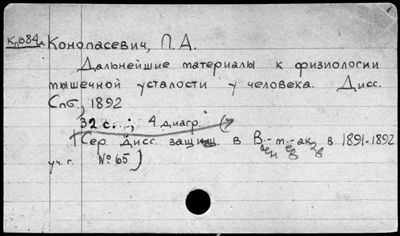 Кп684 Конопасевич, П. А.
Дальнейшие материалы к физиологии
мышечной усталости у человека. Дисс.
Спб, 1892
32 с. ; 4 диагр.
(Сер. дисс. защищ. в В.-м. ак. в 1891-1892
уч. г. № 65)